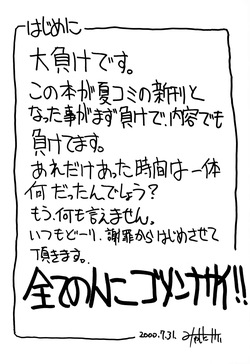 はじめに
大負けです。
この本が夏コミの新刊と
なった事がまず負けで、内容でも
負けてます。
あれだけあった時間は一体
何だったんでしょう？
もう何も言えません。
いつもどーり、謝罪からはじめさせて
頂きます。
全てのんにゴメンナサイ!!
2000.7.31.